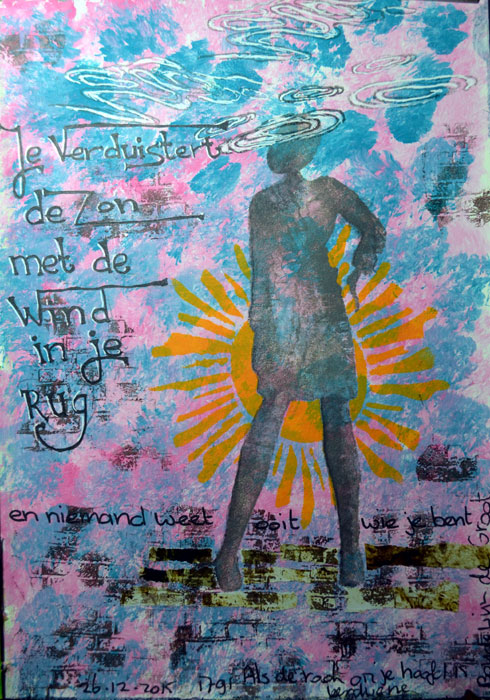 Je Verduistert
de Zon
met de
Wind
in je
Rug
en niemand weet ooit wie je bent
Boudewijn de Groot
26.12.2015 Als de rook om je hoofd is
verdwenen